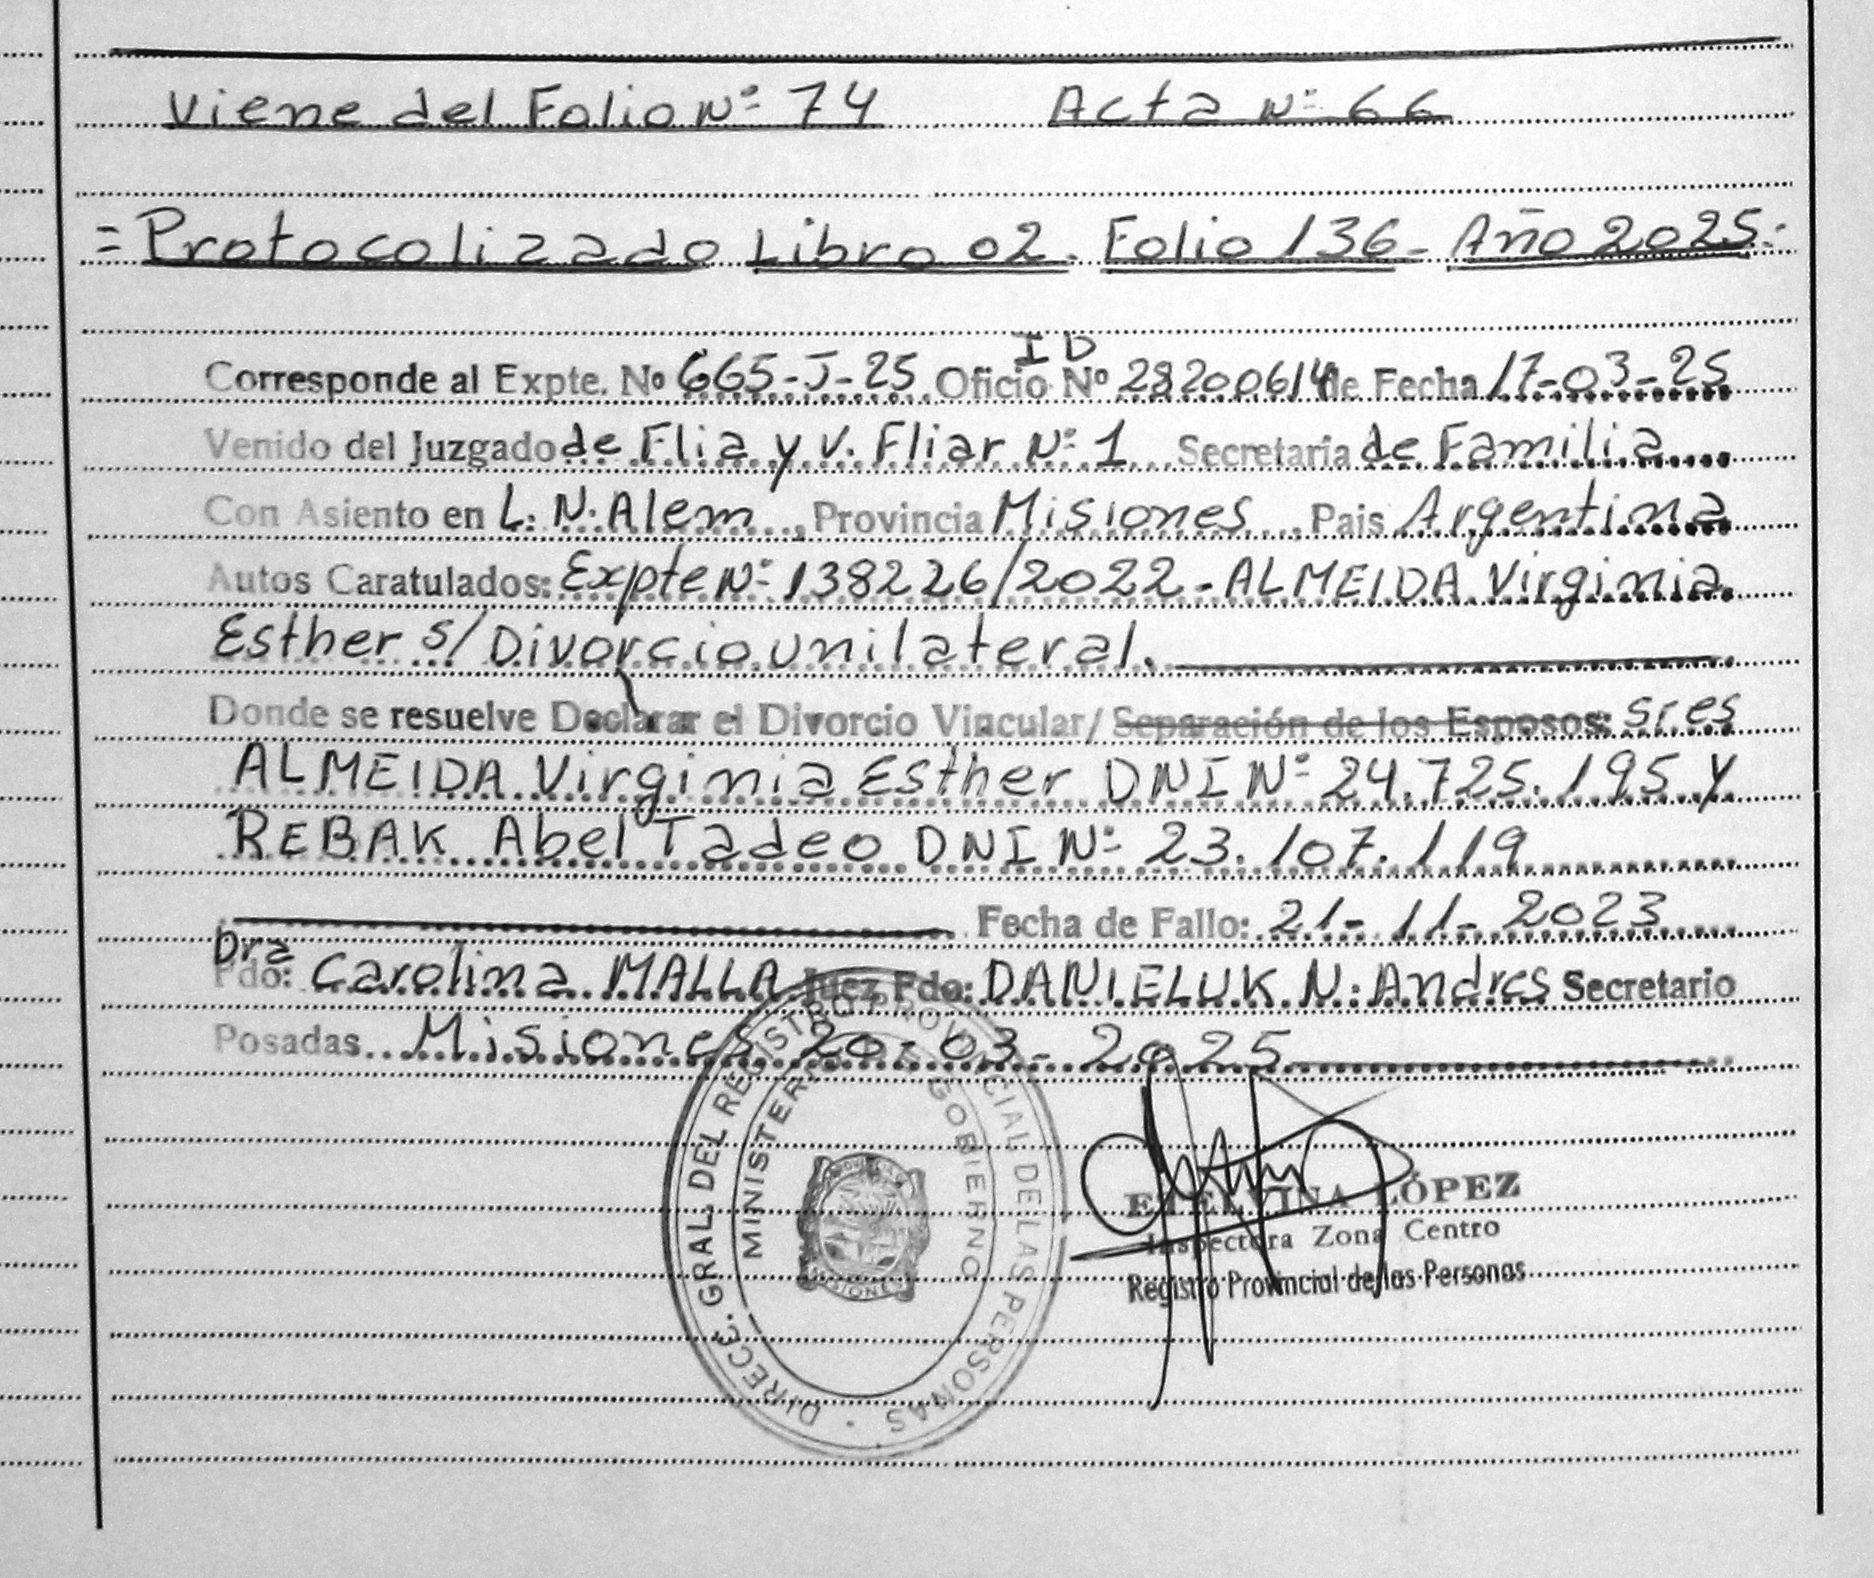 Viene del Folio Nº 74 Acta Nº 66
= Protocolizado Libro 02. Folio 136- Año 2025.
ID
Corresponde al Expte. Nº 665-J-25 Oficio Nº 28200614 de Fecha 17-03-25
Venido del Juzgado de Flia y V. Fliar Nº 1 Secretaria de Familia
Con Asiento en L. N. Alem, Provincia Misiones, Pais Argentina
Autos Caratulados: Expte Nº 138226/2022-ALMEIDA Virginia
Esther s/Divorcio unilateral.
Donde se resuelve Declarar el Divorcio Vincular/ Separación de los Esposos: sres
ALMEIDA Virginia Esther DNI Nº 24.725.195 y
REBAK Abel Tadeo DNI Nº 23.107.119
Fecha de Fallo: 21-11-2023
Dra
Fdo: Carolina MALLA Juez Fdo: DANIELUK N. Andres Secretario
Posadas Misiones 20-03-2025
DIRECC. GRAL. DEL REGISTRO PROVINCIAL DE LAS PERSONAS
MINISTERIO GOBIERNO
ETELVINA LÓPEZ
Inspectora Zona Centro
Registro Provincial de las Personas